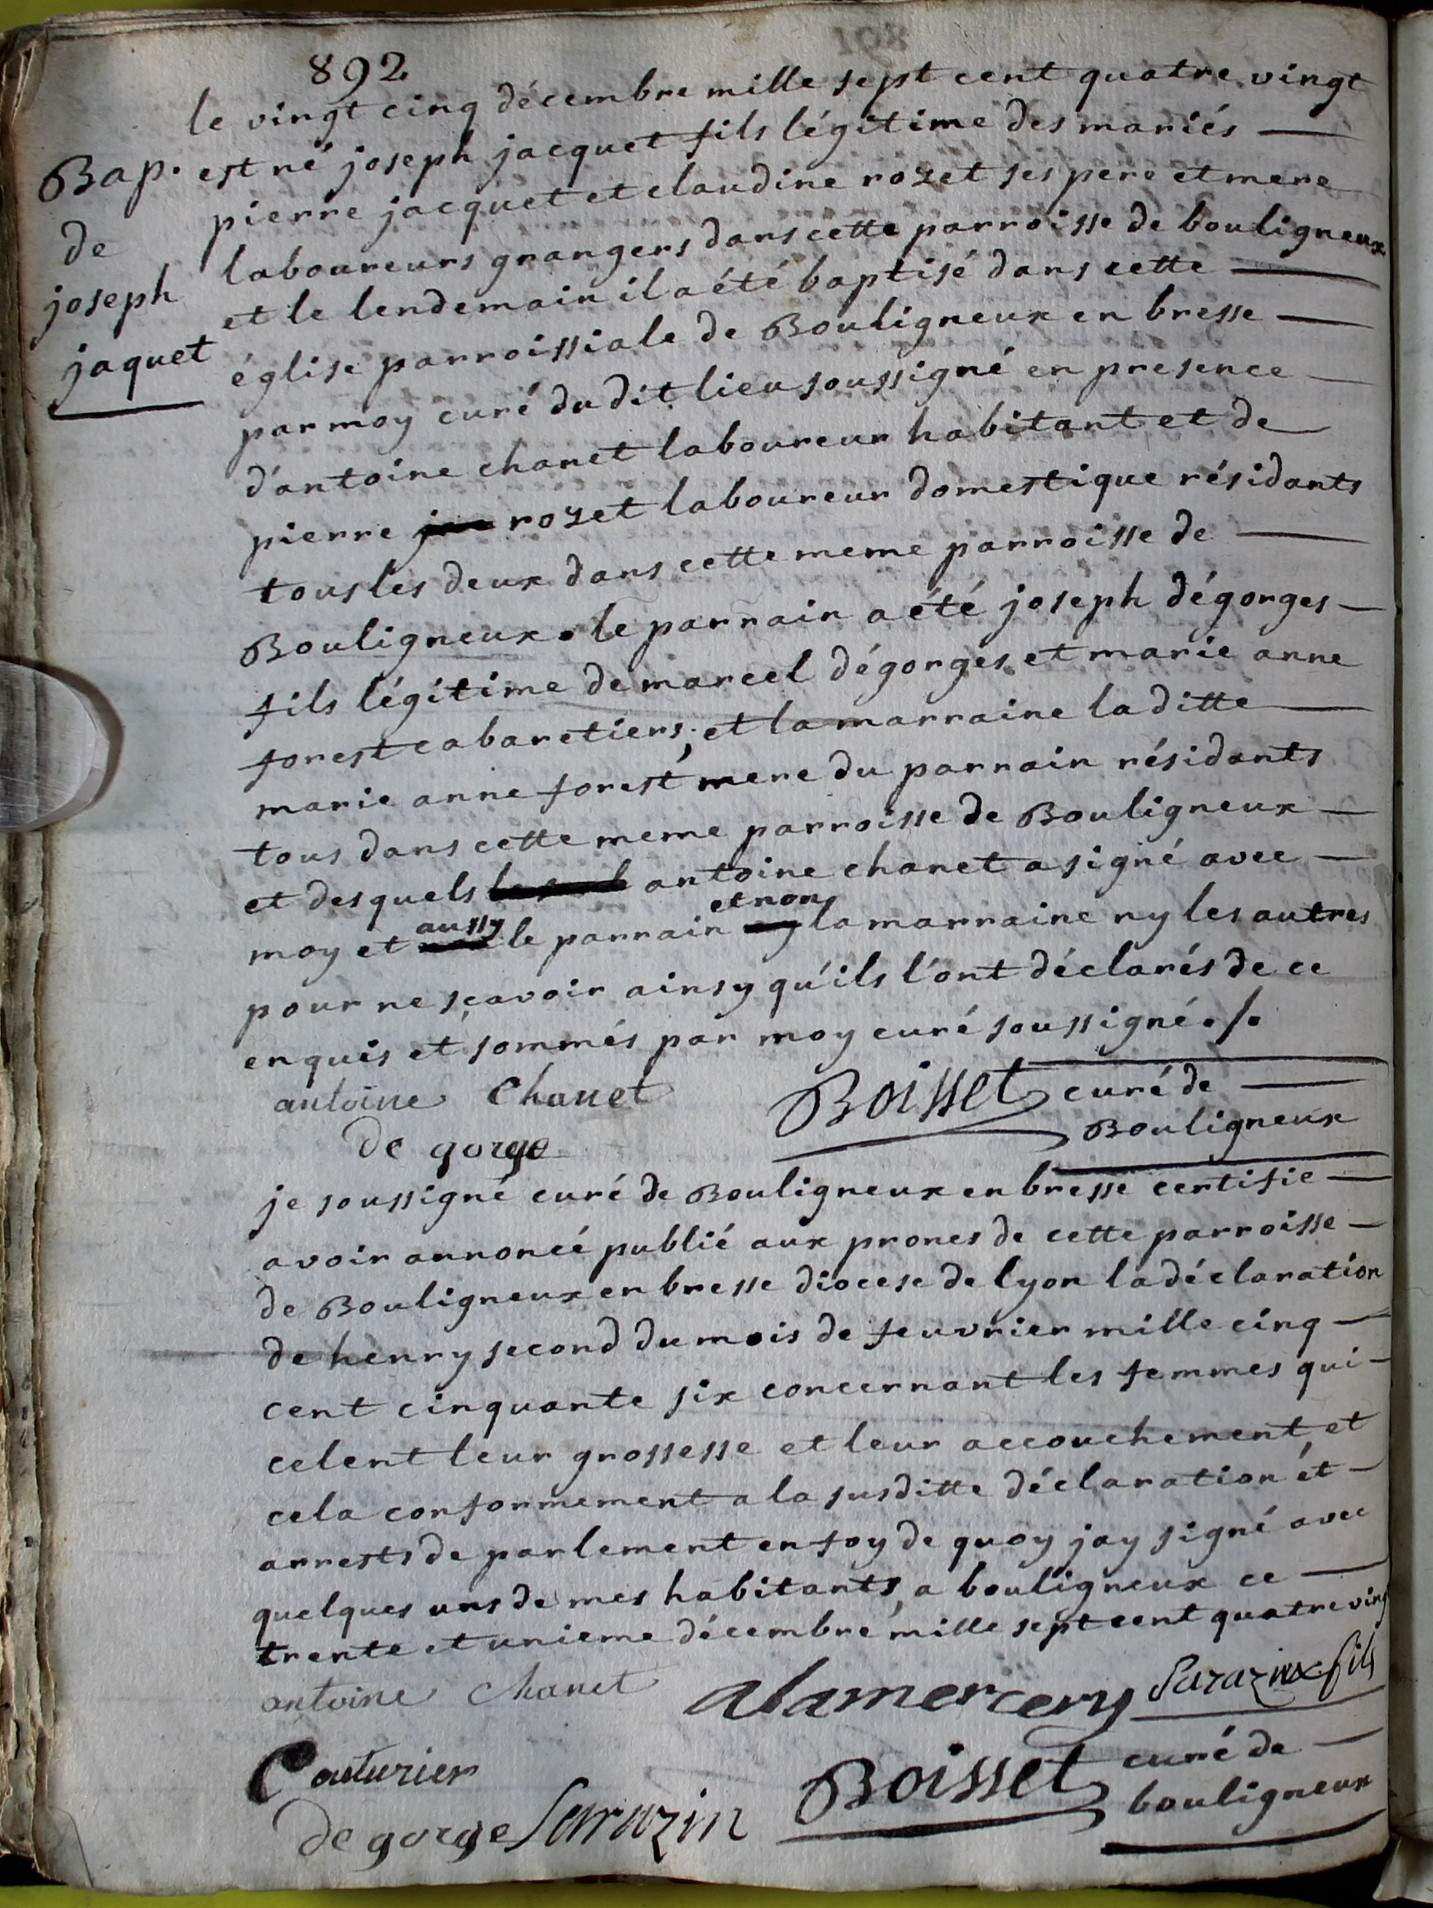 892
le vingt cinq décembre mille sept cent quatre vingt
Bap. de joseph jaquet
est né joseph jacquet fils légitime des mariés
pierre jacquet et claudine rozet ses pere et mere
laboureurs grangers dans cette parroisse de bouligneux
et le lendemain il a été baptisé dans cette
église parroissiale de Bouligneux en bresse
par moy curé du dit lieu soussigné en presence
d'antoine chanet laboureur habitant et de
pierre rozet laboureur domestique résidants
tous les deux dans cette meme parroisse de
Bouligneux. le parrain a été joseph dégorges
fils légitime de marcel dégorges et marie anne
forest cabaretiers, et la marraine la ditte
marie anne forest mere du parrain résidants
tous dans cette meme parroisse de Bouligneux
et desquels antoine chanet a signé avec
moy et aussy le parrain et non la marraine ny les autres
pour ne sçavoir ainsy qu'ils l'ont déclarés de ce
enquis et sommés par moy curé soussigné ./.
antoine Chanet
Boisset curé de
Bouligneux
de gorge
je soussigné curé de Bouligneux en bresse certifie
avoir annoncé publié aux prones de cette parroisse
de Bouligneux en bresse diocese de lyon la déclaration
de henry second du mois de feuvrier mille cinq
cent cinquante six concernant les femmes qui
celent leur grossesse et leur accouchement, et
cela conformement a la susditte déclaration et
arrests de parlement en foy de quoy jay signé avec
quelques uns de mes habitants, a bouligneux ce
trente et unieme décembre mille sept cent quatre ving
antoine Chanet
alamercery
Sarazin fils
Couturier
Boisset curé de
bouligneux
de gorge Sarazin